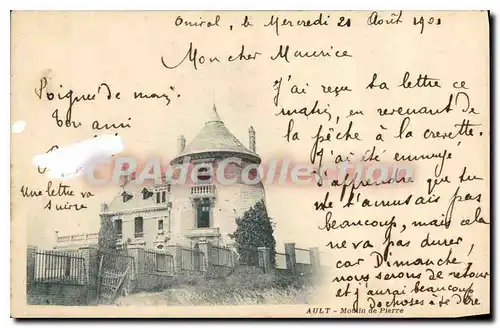 Onival, le Mercredi 21 Août 1901
Mon cher Maurice
J'ai reçu ta lettre ce
matin, en revenant de
la pêche à la crevette.
J'ai été ennuyé
d'apprendre que tu
ne t'amusais pas
beaucoup, mais cela
ne va pas durer,
car Dimanche,
nous serons de retour
et j'aurai beaucoup
de choses à te dire
Poignée de main.
Ton ami
Une lettre va
suivre
CPA Collection
AULT - Moulin de Pierre